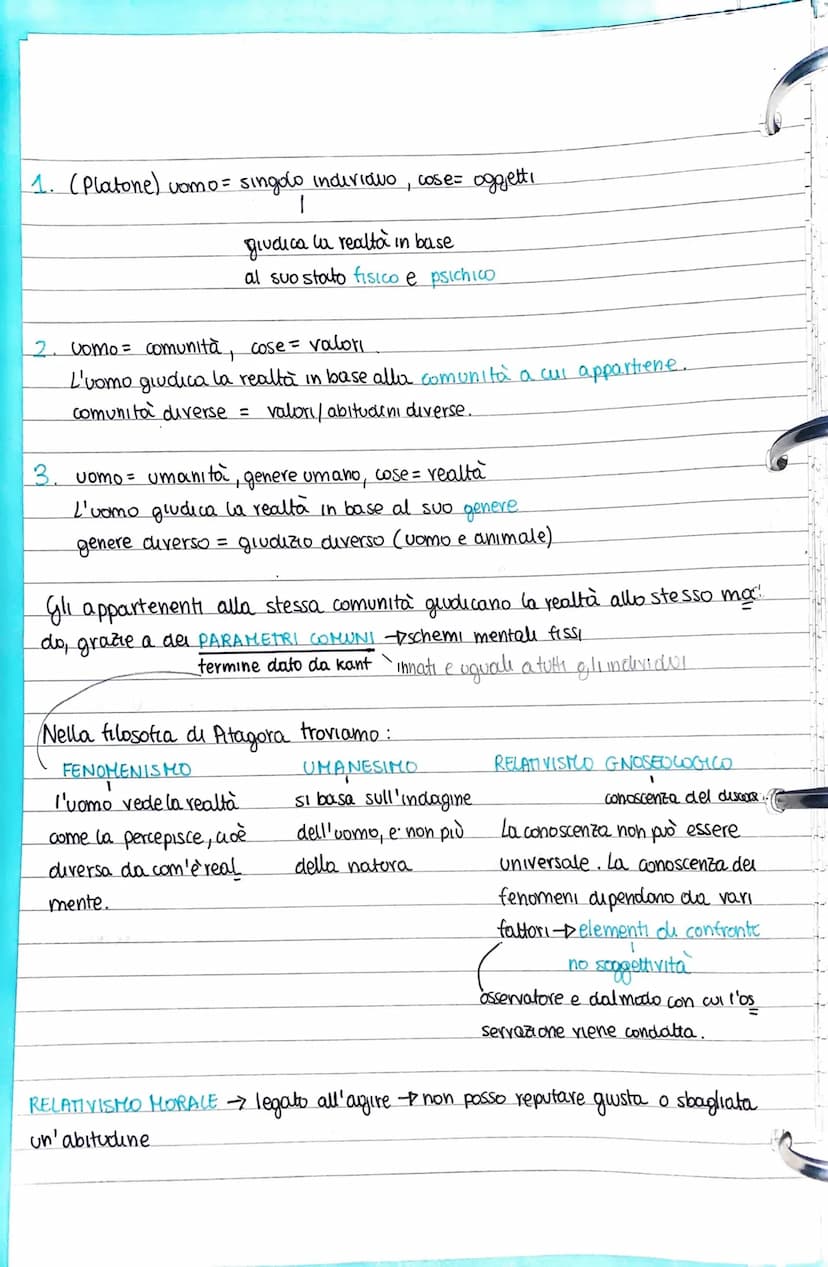 1. (Platone) uomo= singolo individuo, cose= oggetti
giudica la realtà in base
al suo stato fisico e psichico
2. uomo= comunità, cose= valori
L'uomo giudica la realtà in base alla comunità a cui appartiene.
comunità diverse = valori/abitudini diverse.
3. uomo= umanità, genere umano, cose= realtà
L'uomo giudica la realtà in base al suo genere
genere diverso = giudizio diverso (uomo e animale)
Gli appartenenti alla stessa comunità giudicano la realtà allo stesso mo
do, grazie a dei PARAMETRI COMUNI → schemi mentali fissi
termine dato da kant innati e uguali a tutti gli individui
Nella filosofia di Pitagora troviamo:
FENOMENISMO
l'uomo vede la realtà
come la percepisce, cioè
diversa da com'è real
mente.
UMANESIMO
si basa sull'indagine
dell'uomo, e non più
della natura
RELATIVISMO GNOSEOLOGICO
conoscenza del
La conoscenza non può essere
universale. La conoscenza dei
fenomeni dipendono da vari
fattori → elementi di confronto
no soggettività
osservatore e dal modo con cui l'os
servazione viene condatta.
RELATIVISMO MORALE → legato all'agire → non posso reputare giusta o sbagliata
un'abitudine